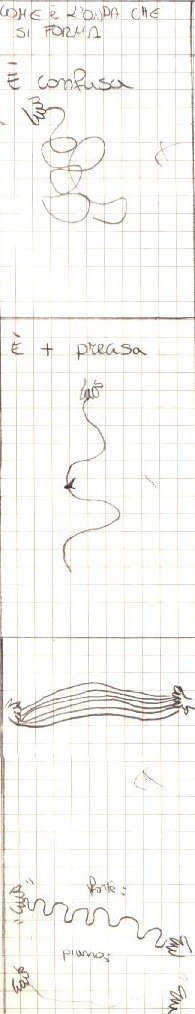 COME È L'ONDA CHE
SI FORMA
È confusa
È + precisa
forte:
piano: